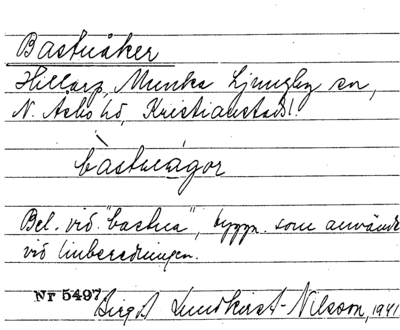 Bastuåker
Hillarp, Munka Ljungby sn,
N. Åsbo hd, Kristianstads l.
bàstuågor
Bel. vid "bastua", byggn. som användes
vid linberedningen.
Nr 5497 Birgit Lundkvist-Nilsson, 1941